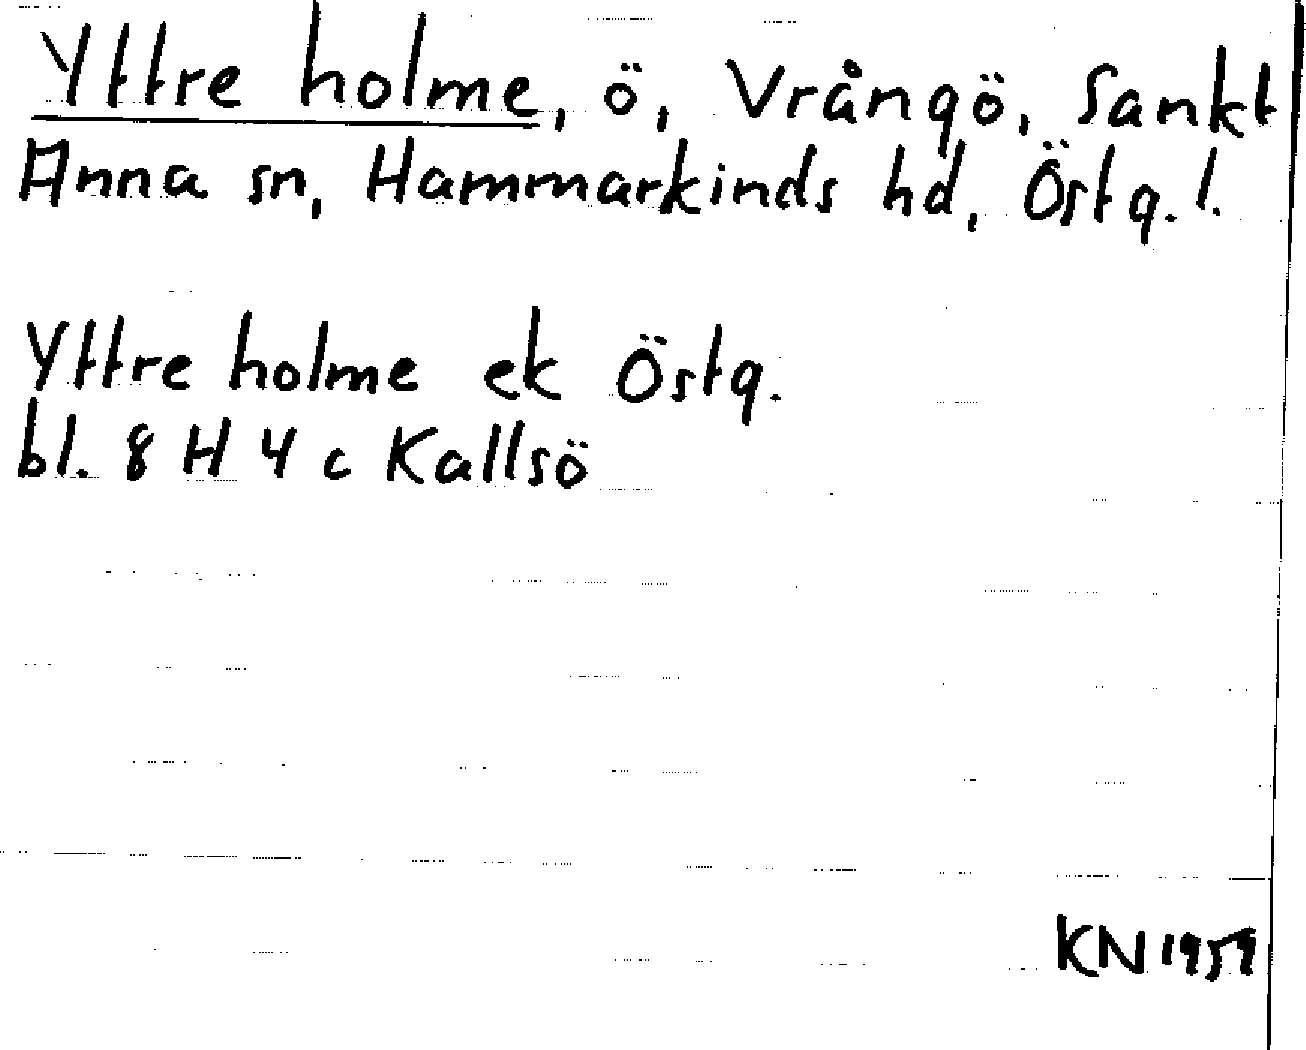 Yttre holme, ö, Vrångö, Sankt
Anna sn, Hammarkinds hd, Östg. l.
Yttre holme ek Östg.
bl. 8 H 4 c Kallsö
KN 1959